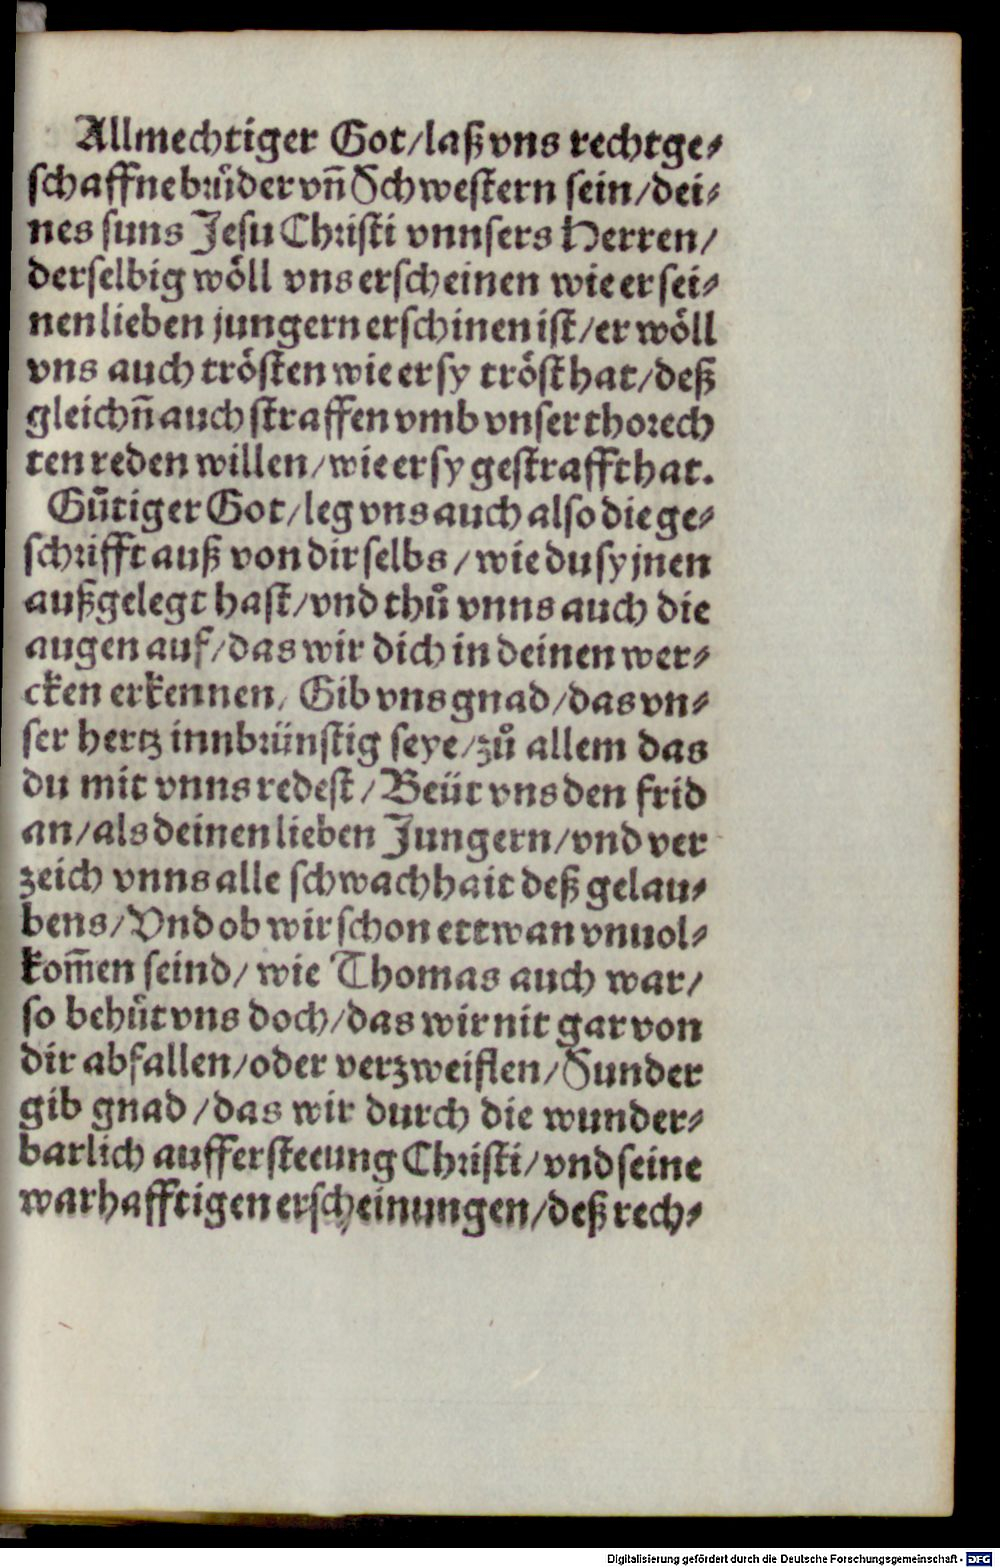 Allmechtiger Got/laß vns rechtge⸗
schaffne bruͤder vñ Schwestern sein/dei⸗
nes suns Jesu Christi vnnsers Herren/
derselbig woͤll vns erscheinen wie er sei⸗
nen lieben jungern erschinen ist/er woͤll
vns auch troͤsten wie er sy troͤst hat/deß
gleichñ auch straffen vmb vnser thorech
ten reden willen/wie er sy gestrafft hat.
Guͤtiger Got/leg vns auch also die ge⸗
schrifft auß von dir selbs/wie du sy jnen
außgelegt hast/vnd thuͦ vnns auch die
augen auf/das wir dich in deinen wer⸗
cken erkennen/ Gib vns gnad/das vn⸗
ser hertz innbrünstig seye/zuͦ allem das
du mit vnns redest/Beüt vns den frid
an/als deinen lieben Jungern/vnd ver
zeich vnns alle schwachhait deß gelau⸗
bens/Vnd ob wir schon ettwan vnuol⸗
kom̃en seind/wie Thomas auch war/
so behuͤt vns doch/das wir nit gar von
dir abfallen/oder verzweiflen/Sunder
gib gnad/das wir durch die wunder⸗
barlich auffersteeung Christi/vnd seine
warhafftigen erscheinungen/deß rech⸗
Digitalisierung gefördert durch die Deutsche Forschungsgemeinschaft - DFG